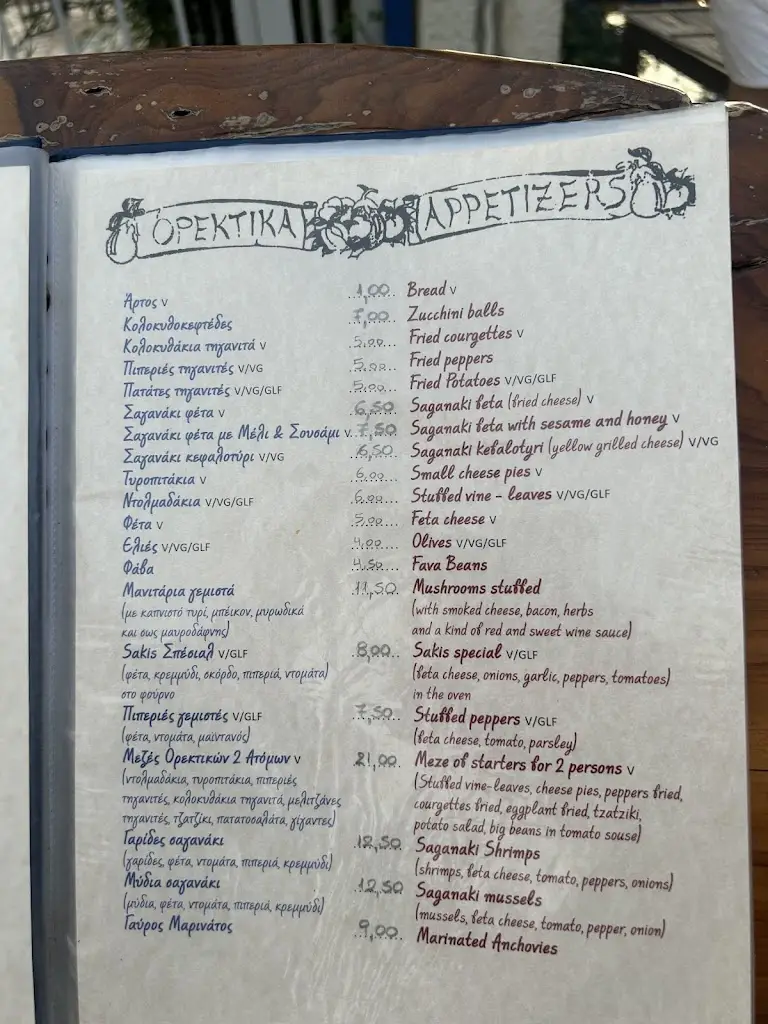 ΟΡΕΚΤΙΚΑ APPETIZERS
Άρτος V 1,00 Bread V
Κολοκυθοκεφτέδες 7,00 Zucchini balls
Κολοκυθάκια τηγανιτά V 5,00 Fried courgettes V
Πιπεριές τηγανιτές V/VG 5,00 Fried peppers
Πατάτες τηγανιτές V/VG/GLF 5,00 Fried Potatoes V/VG/GLF
Σαγανάκι φέτα V 6,50 Saganaki feta (fried cheese) V
Σαγανάκι φέτα με Μέλι & Σουσάμι V 7,50 Saganaki feta with sesame and honey V
Σαγανάκι κεφαλοτύρι V/VG 6,50 Saganaki kefalotyri (yellow grilled cheese) V/VG
Τυροπιτάκια V 6,00 Small cheese pies V
Ντολμαδάκια V/VG/GLF 6,00 Stuffed vine - leaves V/VG/GLF
Φέτα V 5,00 Feta cheese V
Ελιές V/VG/GLF 4,00 Olives V/VG/GLF
Φάβα 4,50 Fava Beans
Μανιτάρια γεμιστά 11,50 Mushrooms stuffed
(με καπνιστό τυρί, μπέικον, μυρωδικά (with smoked cheese, bacon, herbs
και σως μαυροδάφνης) and a kind of red and sweet wine sauce)
Sakis Σπέσιαλ V/GLF 8,00 Sakis special V/GLF
(φέτα, κρεμμύδι, σκόρδο, πιπεριά, ντομάτα) (feta cheese, onions, garlic, peppers, tomatoes)
στο φούρνο in the oven
Πιπεριές γεμιστές V/GLF 7,50 Stuffed peppers V/GLF
(φέτα, ντομάτα, μαϊντανός) (feta cheese, tomato, parsley)
Μεζές Ορεκτικών 2 Ατόμων V 21,00 Meze of starters for 2 persons V
(ντολμαδάκια, τυροπιτάκια, πιπεριές (Stuffed vine-leaves, cheese pies, peppers fried,
τηγανιτές, κολοκυθάκια τηγανιτά, μελιτζάνες courgettes fried, eggplant fried, tzatziki,
τηγανιτές, τζατζίκι, πατατοσαλάτα, γίγαντες) potato salad, big beans in tomato souse)
Γαρίδες σαγανάκι 12,50 Saganaki Shrimps
(γαρίδες, φέτα, ντομάτα, πιπεριά, κρεμμύδι) (shrimps, feta cheese, tomato, peppers, onions)
Μύδια σαγανάκι 12,50 Saganaki mussels
(μύδια, φέτα, ντομάτα, πιπεριά, κρεμμύδι) (mussels, feta cheese, tomato, pepper, onion)
Γαύρος Μαρινάτος 9,00 Marinated Anchovies